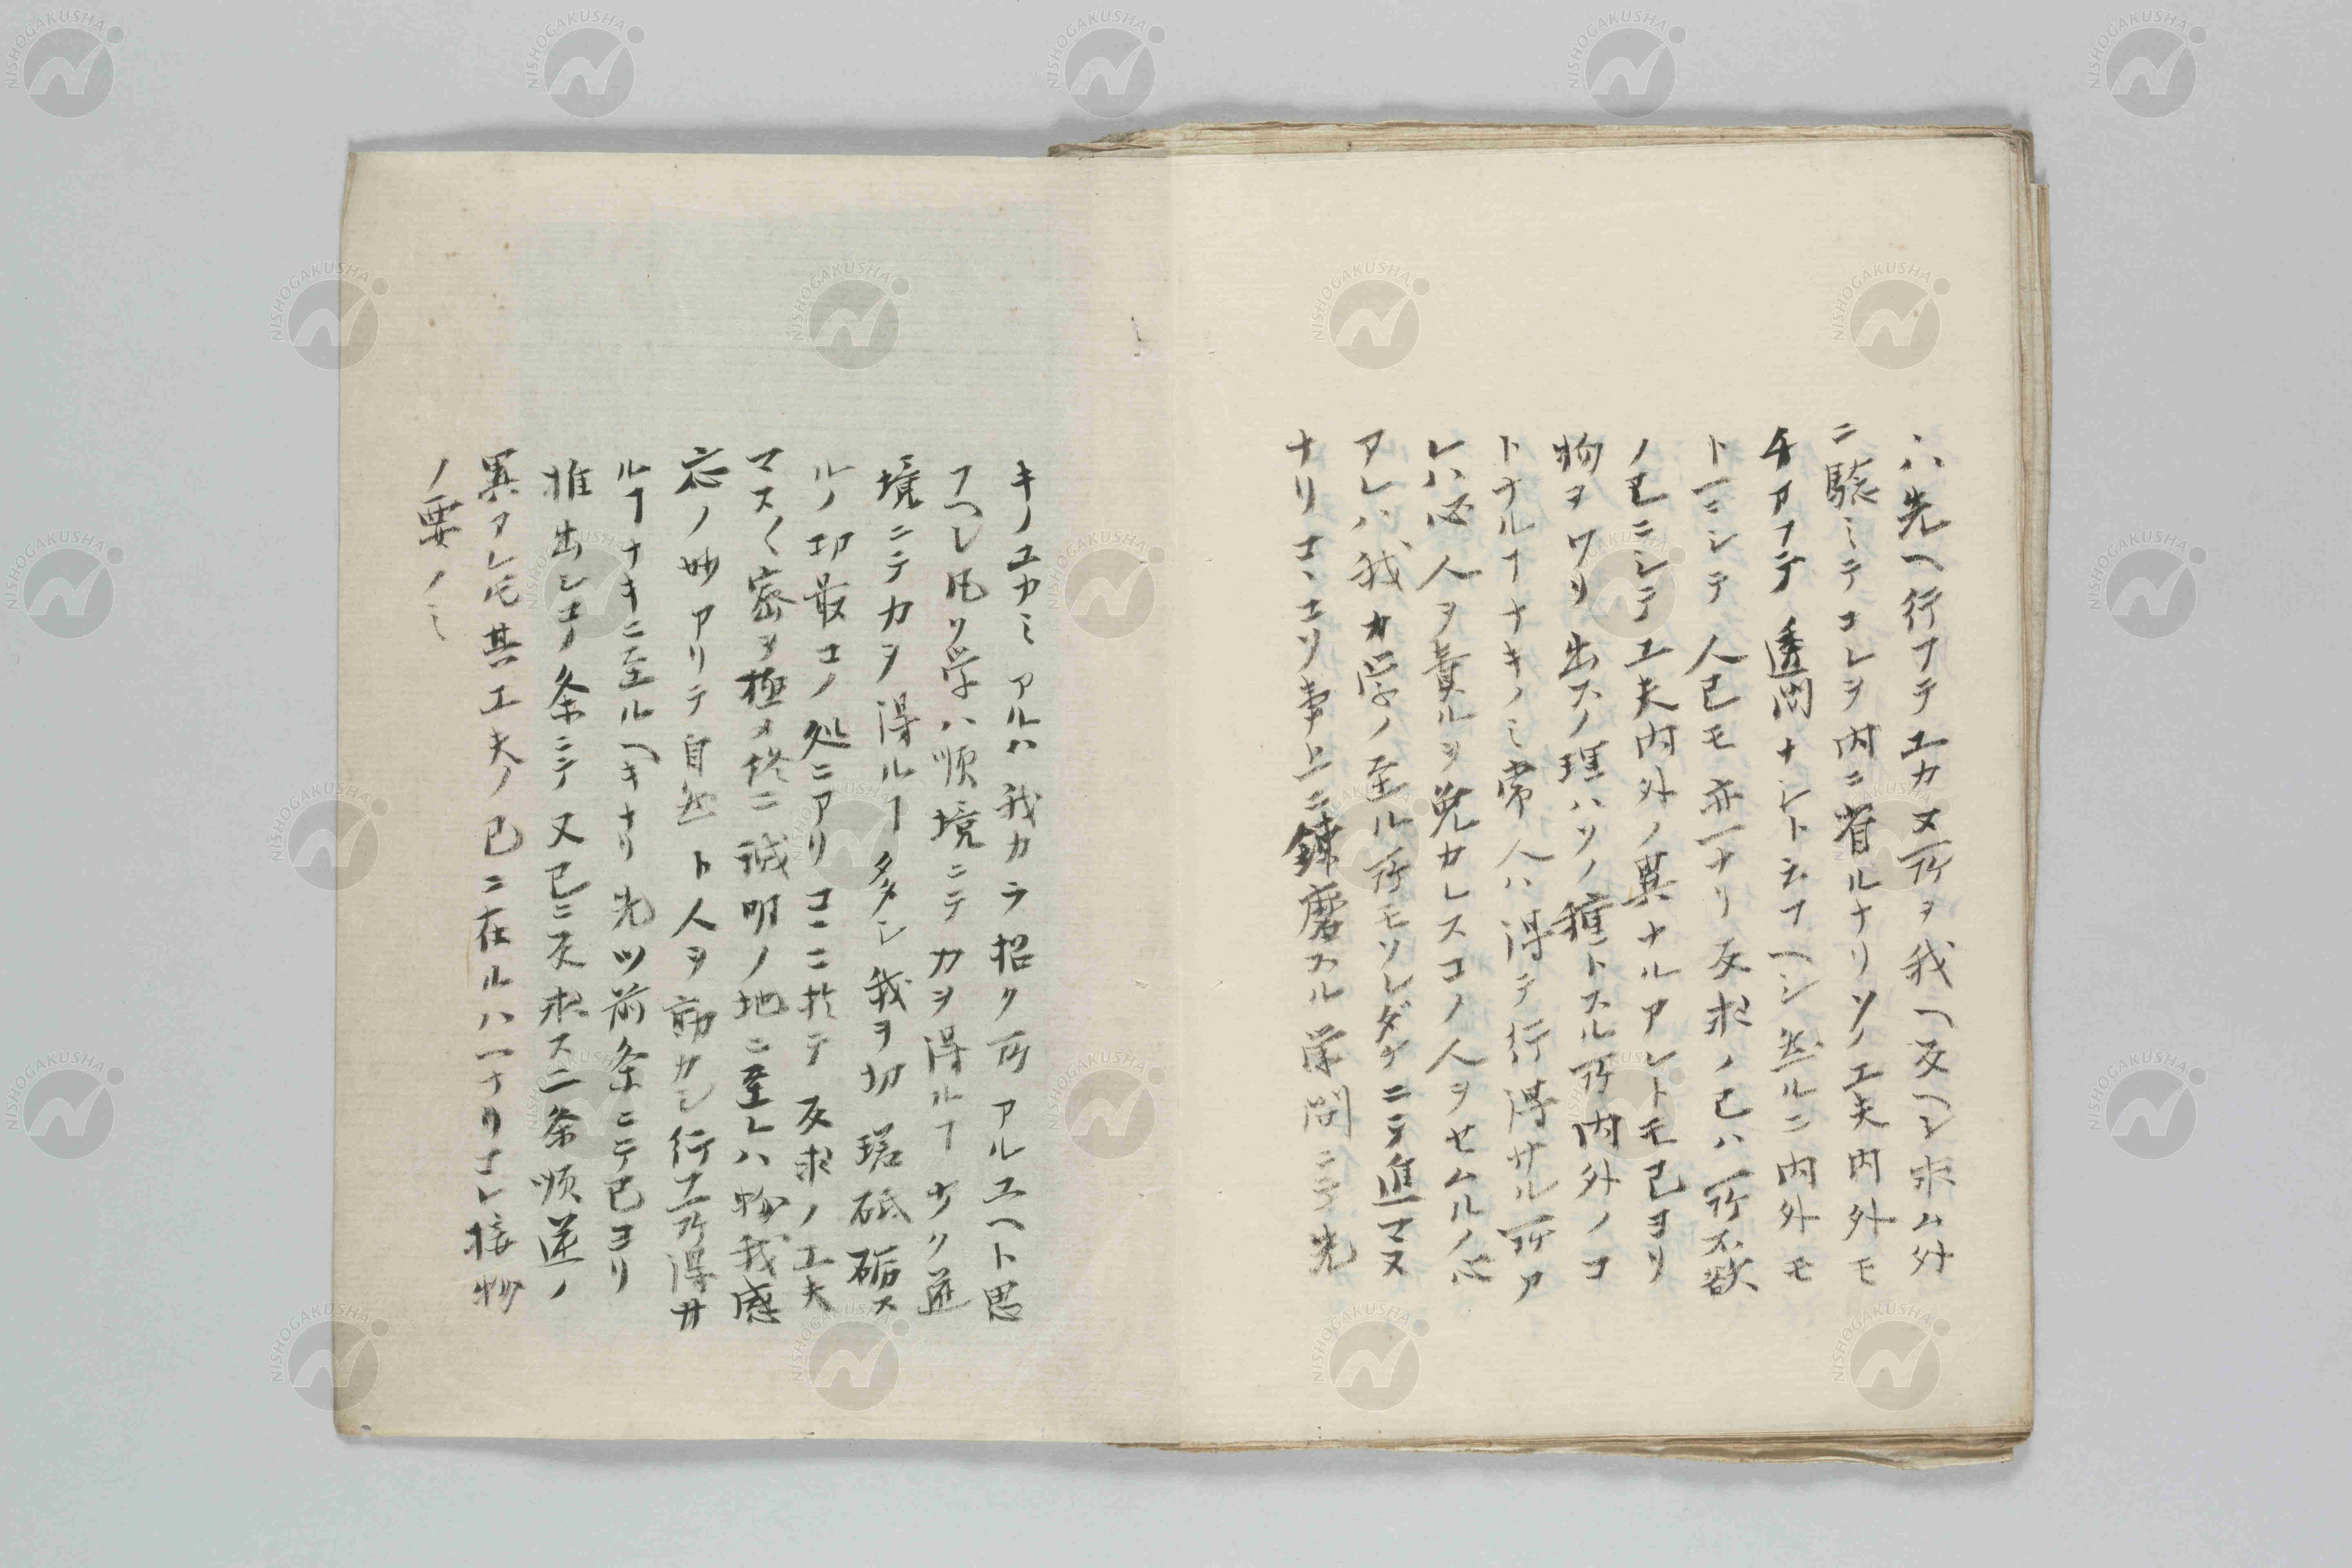 ハ先ヘ行フテユカヌ所ヲ我ヘ反ヘシ求ム外
ニ驗ミテコレヲ内ニ省ルナリソノ工夫内外モ
チアフテ透間ナシト云フヘシ然ルニ内外モ
ト一ニシテ人己モ亦一ナリ反求ノ己ハ所不欲
ノ己ニシテ工夫内外ノ異ナルアレトモ己ヨリ
物ヲワリ出スノ理ハソノ種トスル所内外ノコ
トナルヿナキノミ常人ハ得テ行得サル所ア
レハ必人ヲ責ルヲ免カレスコノ人ヲセムルノ心
アレハ我カ学ノ至ル所モソレダケニテ進マヌ
ナリコヽヨリ事上ニ錬磨スル学問ニテ先
キノユカミアルハ我カラ招ク所アルユヘト思
フヘシ凡ソ学ハ順境ニテ力ヲ得ルヿ少ク逆
境ニテ力ヲ得ルヿ多シ我ヲ切瑳砥砺ス
ルノ功最コノ処ニアリココニ於テ反求ノ工夫
マス〱密ヲ極メ終ニ誠明ノ地ニ至レハ物我感
応ノ妙アリテ自然ト人ヲ動カシ行フ所得サ
ルヿナキニ至ルヘキナリ先ツ前条ニテ己ヨリ
推出シコノ条ニテ又己ニ反求ス二条順逆ノ
異アレ𪜈其工夫ノ己ニ在ルハ一ナリコレ接物
ノ要ノミ